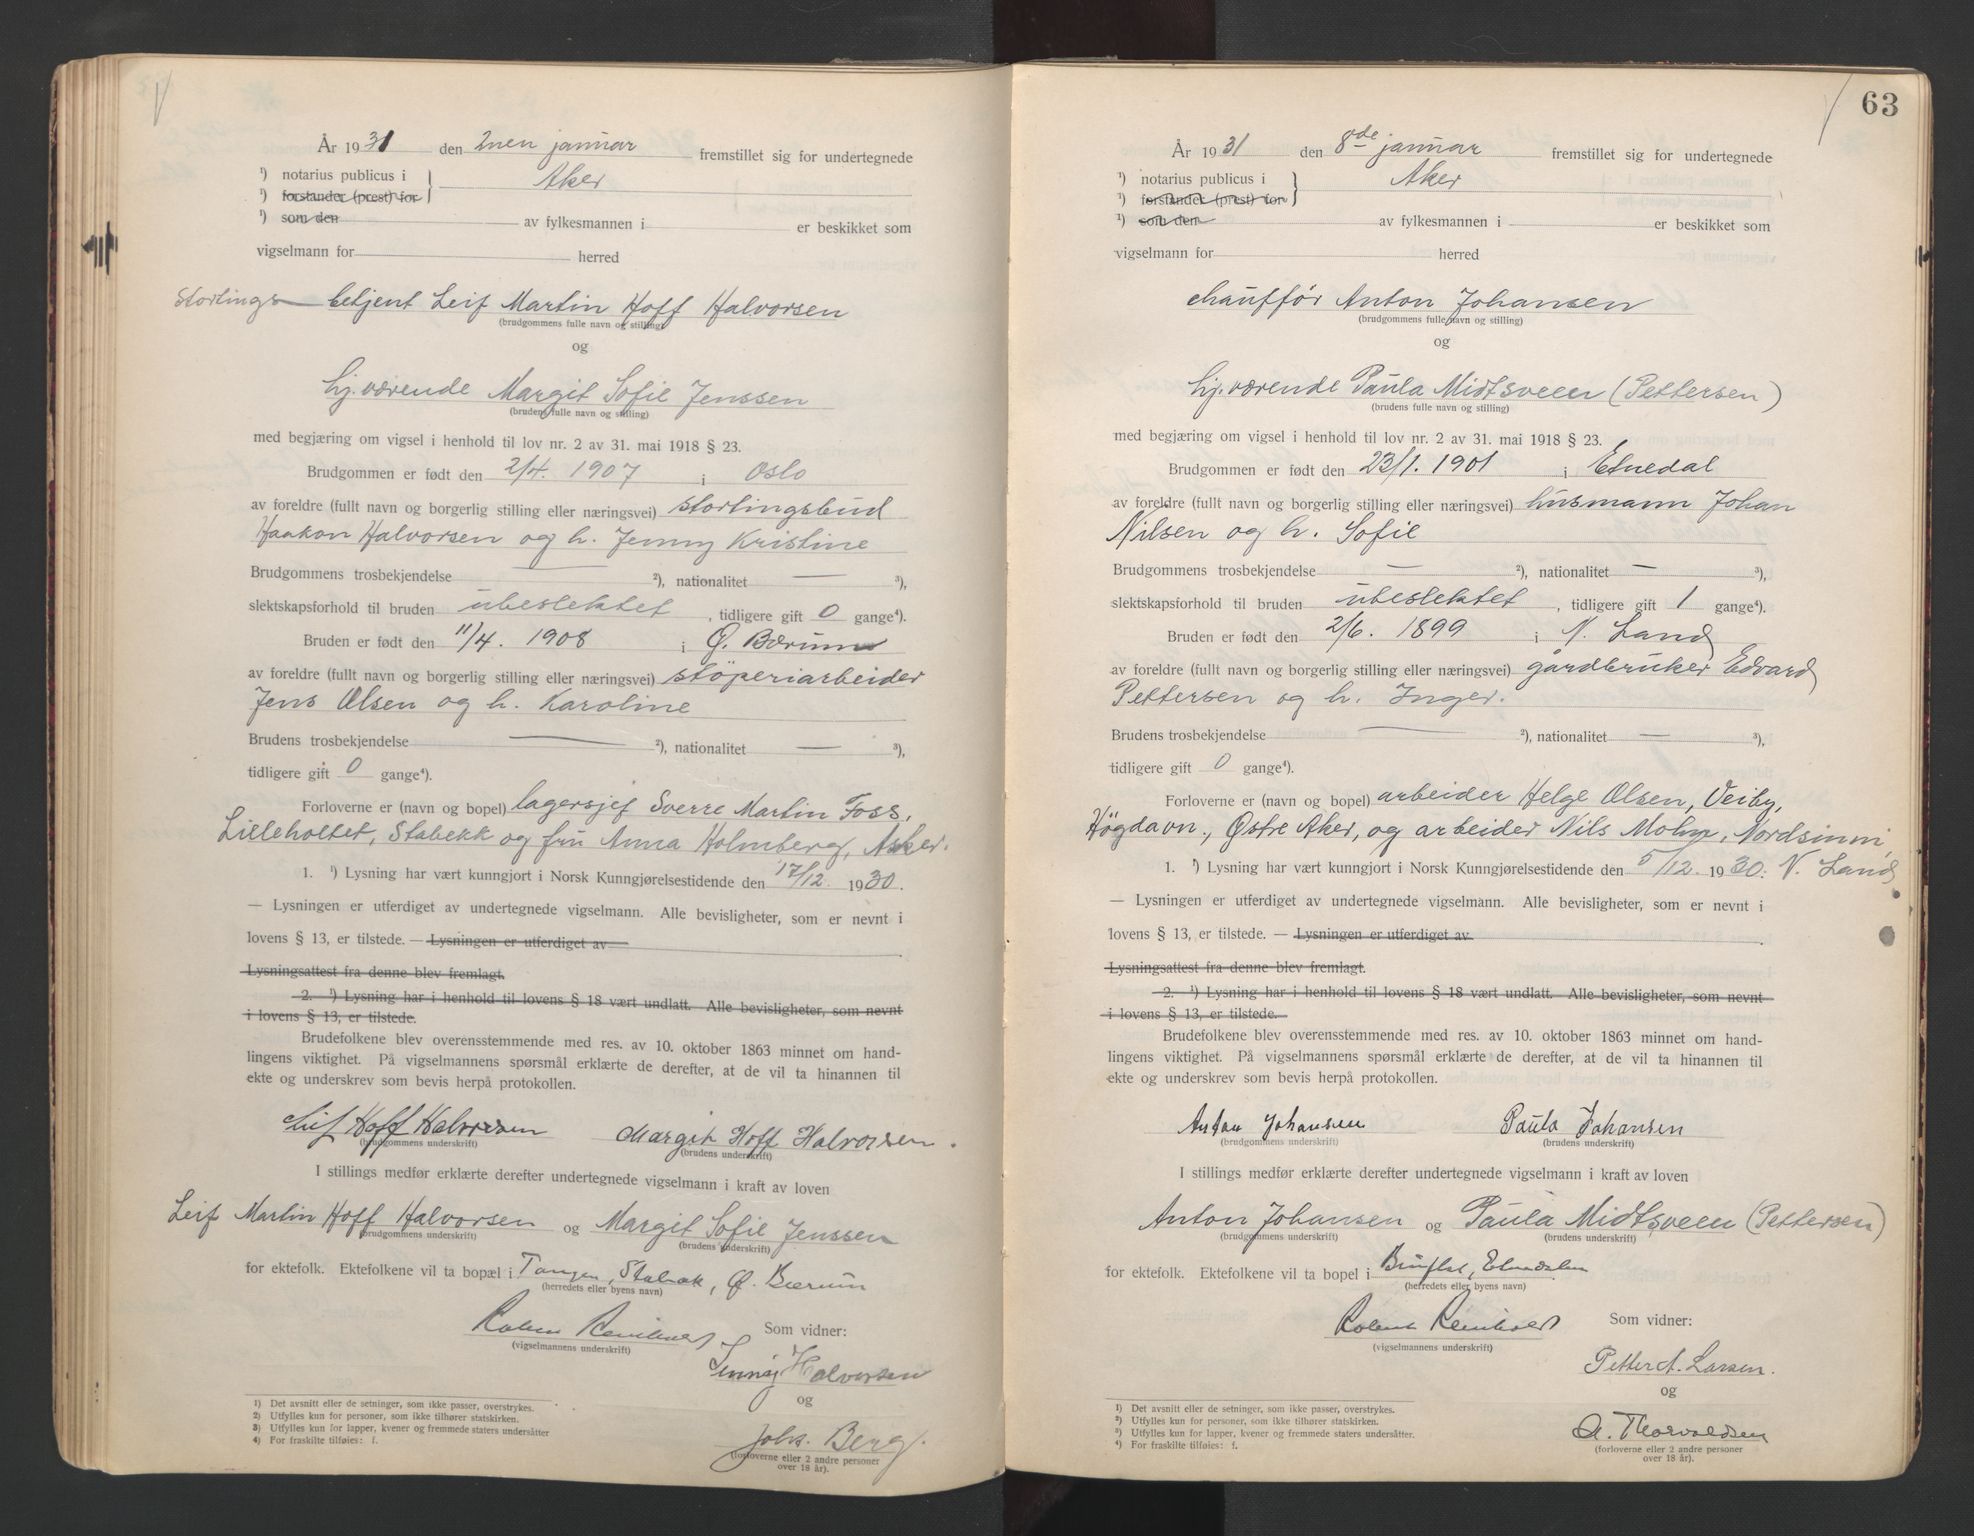 År 1931 den 2nen januar fremstillet sig for undertegnede
¹) notarius publicus i Aker
¹) forstander (prest) for
¹) som den av fylkesmannen i er beskikket som
vigselmann for herred
Stortings betjent Leif Martin Hoff Halvorsen
(brudgommens fulle navn og stilling)
og
hj.værende Margit Sofie Jenssen
(brudens fulle navn og stilling)
med begjæring om vigsel i henhold til lov nr. 2 av 31. mai 1918 § 23.
Brudgommen er født den 2/4. 1907 i Oslo
av foreldre (fullt navn og borgerlig stilling eller næringsvei) stortingsbud
Haakon Halvorsen og h. Jenny Kristine
Brudgommens trosbekjendelse — ²), nationalitet — ³),
slektskapsforhold til bruden ubeslektet, tidligere gift 0 gange⁴).
Bruden er født den 11/4. 1908 i Ø. Bærum
av foreldre (fullt navn og borgerlig stilling eller næringsvei) støperiarbeider
Jens Olsen og h. Karoline
Brudens trosbekjendelse — ²), nationalitet — ³),
tidligere gift 0 gange⁴).
Forloverne er (navn og bopel) lagersjef Sverre Martin Foss,
Lilleholtet, Stabekk og fru Anna Holmberg, Asker.
1. ¹) Lysning har vært kunngjort i Norsk Kunngjørelsestidende den 17/12. 1930.
— Lysningen er utferdiget av undertegnede vigselmann. Alle bevisligheter, som er nevnt i
lovens § 13, er tilstede. — Lysningen er utferdiget av
Lysningsattest fra denne blev fremlagt.
2. ¹) Lysning har i henhold til lovens § 18 vært undlatt. Alle bevisligheter, som nevnt
i lovens § 13, er tilstede.
Brudefolkene blev overensstemmende med res. av 10. oktober 1863 minnet om hand-
lingens viktighet. På vigselmannens spørsmål erklærte de derefter, at de vil ta hinannen til
ekte og underskrev som bevis herpå protokollen.
Leif Hoff Halvorsen Margit Hoff Halvorsen.
(brudgommens underskrift) (brudens underskrift)
I stillings medfør erklærte derefter undertegnede vigselmann i kraft av loven
Leif Martin Hoff Halvorsen og Margit Sofie Jenssen
(brudgommens underskrift) (brudens underskrift)
for ektefolk. Ektefolkene vil ta bopæl i Tangen, Stabæk, Ø. Bærum
(herredets eller byens navn)
Som vidner:
(vigselmannens underskrift)
Jenny Halvorsen
og
Johs. Berg.
(forloverne eller 2 andre personer
over 18 år).
1) Det avsnitt eller de setninger, som ikke passer, overstrykes.
2) Utfylles kun for personer, som ikke tilhører statskirken.
3) Utfylles kun for lapper, kvener og fremmede staters undersåtter
4) For fraskilte tilføies: f.
63
År 1931 den 8de januar fremstillet sig for undertegnede
¹) notarius publicus i Aker
¹) forstander (prest) for
¹) som den av fylkesmannen i er beskikket som
vigselmann for herred
chauffør Anton Johansen
(brudgommens fulle navn og stilling)
og
hj.værende Paula Midtsveen (Pettersen)
(brudens fulle navn og stilling)
med begjæring om vigsel i henhold til lov nr. 2 av 31. mai 1918 § 23.
Brudgommen er født den 23/1. 1901 i Etnedal
av foreldre (fullt navn og borgerlig stilling eller næringsvei) husmann Johan
Nilsen og h. Sofie
Brudgommens trosbekjendelse — ²), nationalitet — ³),
slektskapsforhold til bruden ubeslektet, tidligere gift 1 gange⁴).
Bruden er født den 2/6. 1899 i N. Land
av foreldre (fullt navn og borgerlig stilling eller næringsvei) gårdbruker Edvard
Pettersen og h. Inger.
Brudens trosbekjendelse — ²), nationalitet — ³),
tidligere gift 0 gange⁴).
Forloverne er (navn og bopel) arbeider Helge Olsen, Veiby,
Høgdavn., Østre Aker, og arbeider Nils Mohn, Nordsinni,
1. ¹) Lysning har vært kunngjort i Norsk Kunngjørelsestidende den 5/12. 1930. N. Land
— Lysningen er utferdiget av undertegnede vigselmann. Alle bevisligheter, som er nevnt i
lovens § 13, er tilstede. — Lysningen er utferdiget av
Lysningsattest fra denne blev fremlagt.
2. ¹) Lysning har i henhold til lovens § 18 vært undlatt. Alle bevisligheter, som nevnt
i lovens § 13, er tilstede.
Brudefolkene blev overensstemmende med res. av 10. oktober 1863 minnet om hand-
lingens viktighet. På vigselmannens spørsmål erklærte de derefter, at de vil ta hinannen til
ekte og underskrev som bevis herpå protokollen.
Anton Johansen Paula Johansen
(brudgommens underskrift) (brudens underskrift)
I stillings medfør erklærte derefter undertegnede vigselmann i kraft av loven
Anton Johansen og Paula Midtsveen (Pettersen)
(brudgommens underskrift) (brudens underskrift)
for ektefolk. Ektefolkene vil ta bopel i Bruflat, Etnedalen
(herredets eller byens navn)
Som vidner:
(vigselmannens underskrift)
Petter A. Larsen.
og
A. Thorvaldsen
(forloverne eller 2 andre personer
over 18 år).
¹) Det avsnitt eller de setninger, som ikke passer, overstrykes.
²) Utfylles kun for personer, som ikke tilhører statskirken.
³) Utfylles kun for lapper, kvener og fremmede staters undersåtter.
⁴) For fraskilte tilføies: f.